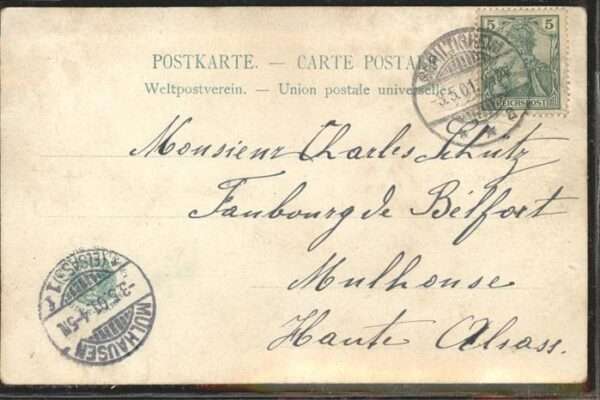 POSTKARTE. — CARTE POSTALE
Weltpostverein. — Union postale universelle.
5 5
REICHSPOST
3.5.01.
Monsieur Charles Schutz
Faubourg de Bélfort
Mulhouse
Haute Alsass.
MÜLHAUSEN
(ELSASS) 1
-3.5.01.4-5N.
f